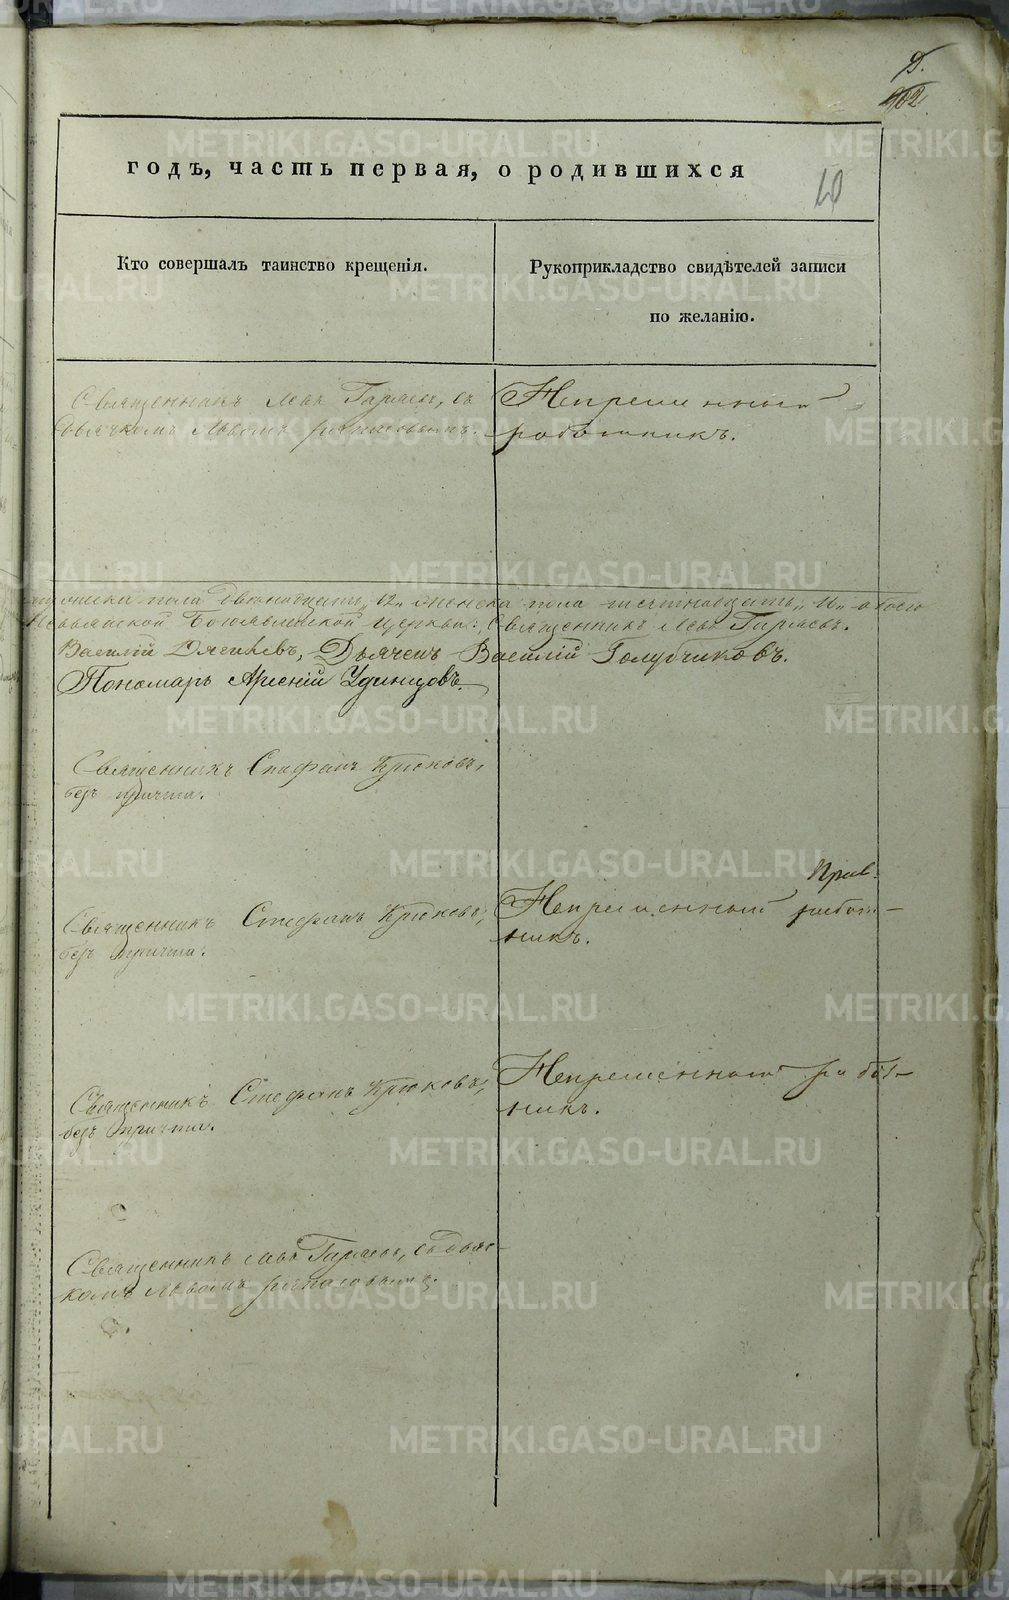 902
годъ, часть первая, о родившихся
10
Кто совершалъ таинство крещенія.
Рукоприкладство свидѣтелей записи
по желанію.
Священникъ Левъ Гаряевъ, съ
Дьячкомъ Львомъ
Непременный
работникъ.
мужеска пола двенадцать, 12. женска пола
церкви: Священникъ Левъ Гаряевъ.
Василій Дягилевъ, Дьячекъ Василій Голубчиковъ.
Пономарь Арсеній Удинцовъ.
Священникъ Стефанъ Крюковъ,
безъ причта.
Священникъ Стефанъ Крюковъ,
безъ причта.
Непременный работ-
никъ.
Священникъ Стефанъ Крюковъ,
безъ причта.
Непременный работ-
никъ.
Священникъ Левъ Гаряевъ, съ дьяч-
комъ Львомъ
METRIKI.GASO-URAL.RU